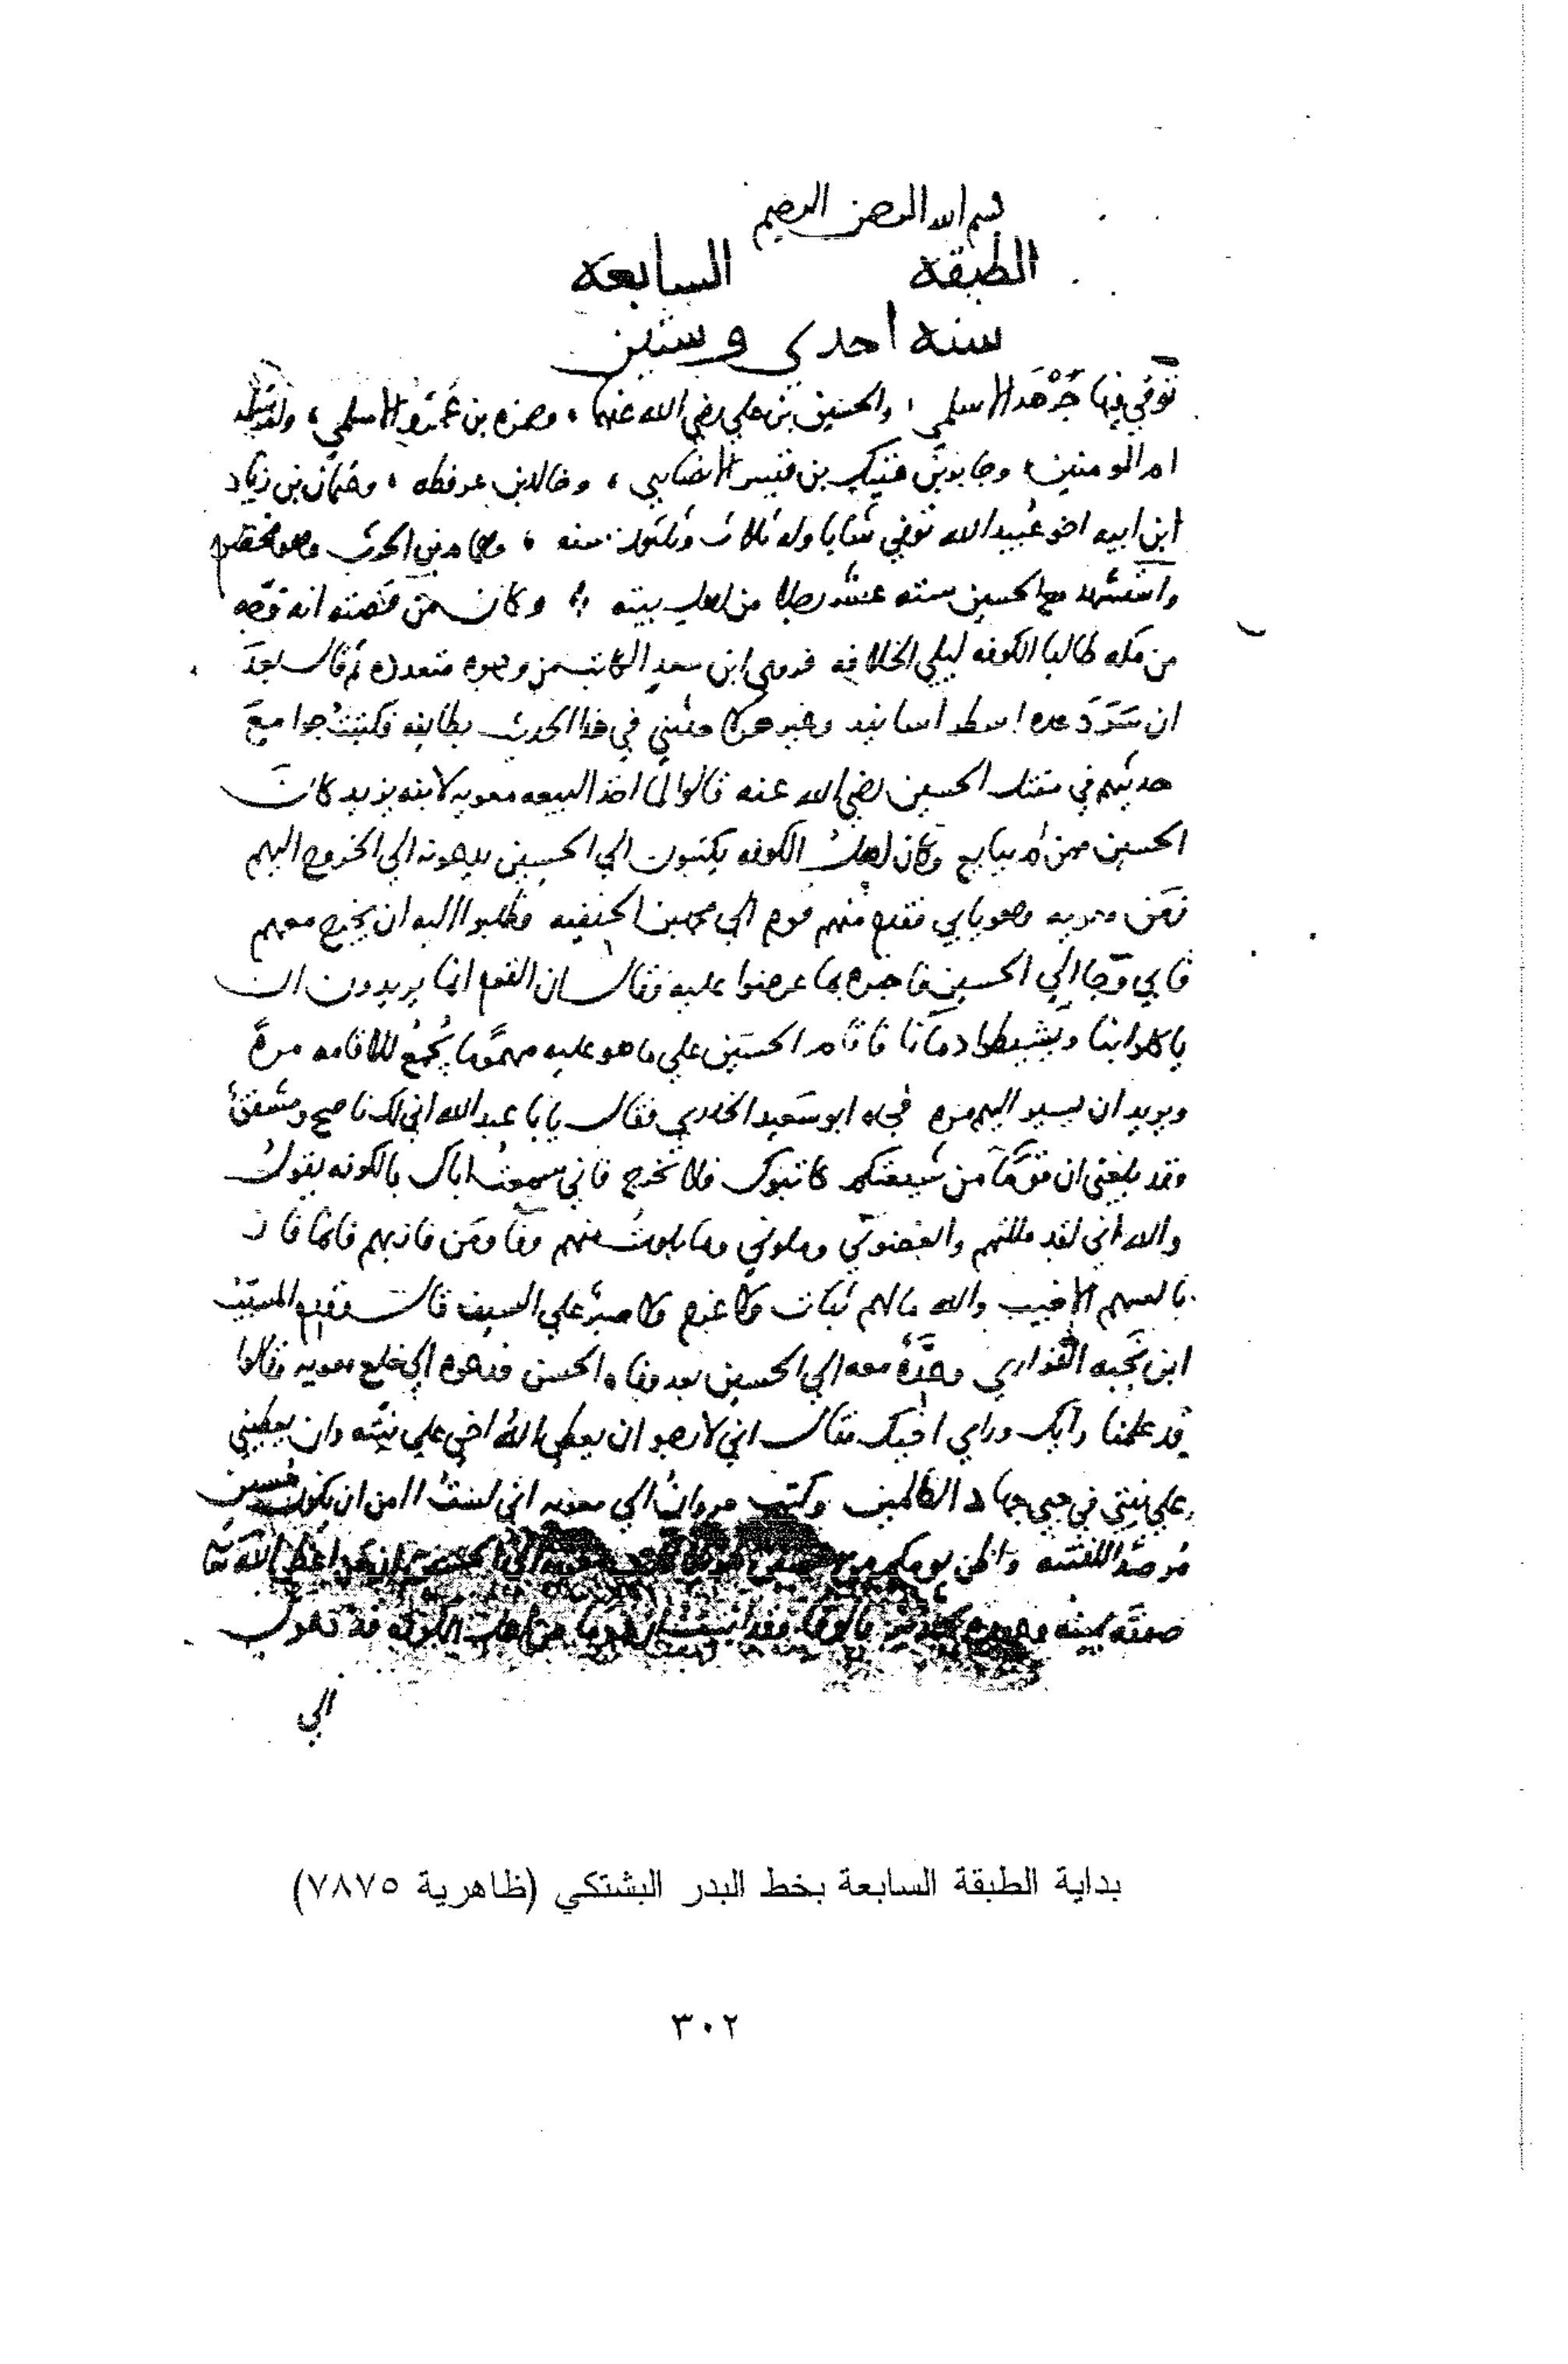 بسم الله الرحمن الرحيم
الطبقه السابعه
سنه احدى وستين
توفي فيها جَرْهَد الاسلمي ، والحسين بن علي رضي الله عنهما ، وحمزه بن عَمرو الاسلمي ، وام سلمه
ام المومنين ، وجابر بن عتيك بن قيس الانصاري ، وخالد بن عرفطه ، وعثمان بن زياد
ابن ابيه اخو عُبيد الله توفي شابا وله ثلاث وثلثون سنه ، وهمام بن الحرث وهو مخضرم
واستشهد مع الحسين سته عشر رجلا من اهل بيته ، وكان من قصته انه توجه
من مكه طالبا الكوفه ليلي الخلافه فروى ابن سعد الكاتب من وجوه متعدده ثم قال بعد
ان سَرَدَ عده اسانيد وغير هولا حدثني في هذا الحديث بطايفه فكتبت جوامع
حديثهم في مقتل الحسين رضي الله عنه قالوا لما اخذ البيعه معويه لابنه يزيد كان
الحسين ممن لم يبايع وكان اهل الكوفه يكتبون الي الحسين يدعونه الي الخروج اليهم
زمن معويه وهو يابي فقدم منهم قوم الي محمد بن الحنفيه وطلبوا اليه ان يخرج معهم
فابي وجا الي الحسين فاخبره بما عرضوا عليه فقال ان القوم انما يريدون ان
ياكلوا بنا ويشيطوا دمانا فاقام الحسين علي ما هو عليه مهموما يُجمع للاقامه مرة
ويريد ان يسير اليهم مره فجاه ابو سَعيد الخدري فقال يابا عبد الله اني لك ناصح ومشفق
وقد بلغني ان قومًا من شيعتكم كاتبوك فلا تخرج فاني سمعت اباك بالكوفه يقول
والله اني لقد مللتهم وابغضوني وملوني وما بلوت منهم وفا ومن فاز بهم فانما فاز
بالسهم الاخيب والله ما لهم ثبات ولا عزم ولا صبر علي السيف قال وقدم المسيب
ابن نجبه الفزاري وعدّة معه الي الحسين بعد وفاه الحسن فدعوه الي خلع معويه وقالوا
قد علمنا رايك وراي اخيك فقال اني لارجو ان يعطي الله اخي علي نيته وان يعطيني
علي نيتي في حبي جهاد الظالمين وكتب مروان الي معويه اني لست امن ان يكون حسين
مُرصدًا للفتنه واظن يومكم من حسين طويلا فكتب معويه الي الحسين ان من اعطى الله
صفقه يمينه وعهده لجدير بالوفا وقد انبيت ان قوما من اهل الكوفه قد دعوك
الي
بداية الطبقة السابعة بخط البدر البشتكي (ظاهرية ٧٨٧٥)
٣٠٢